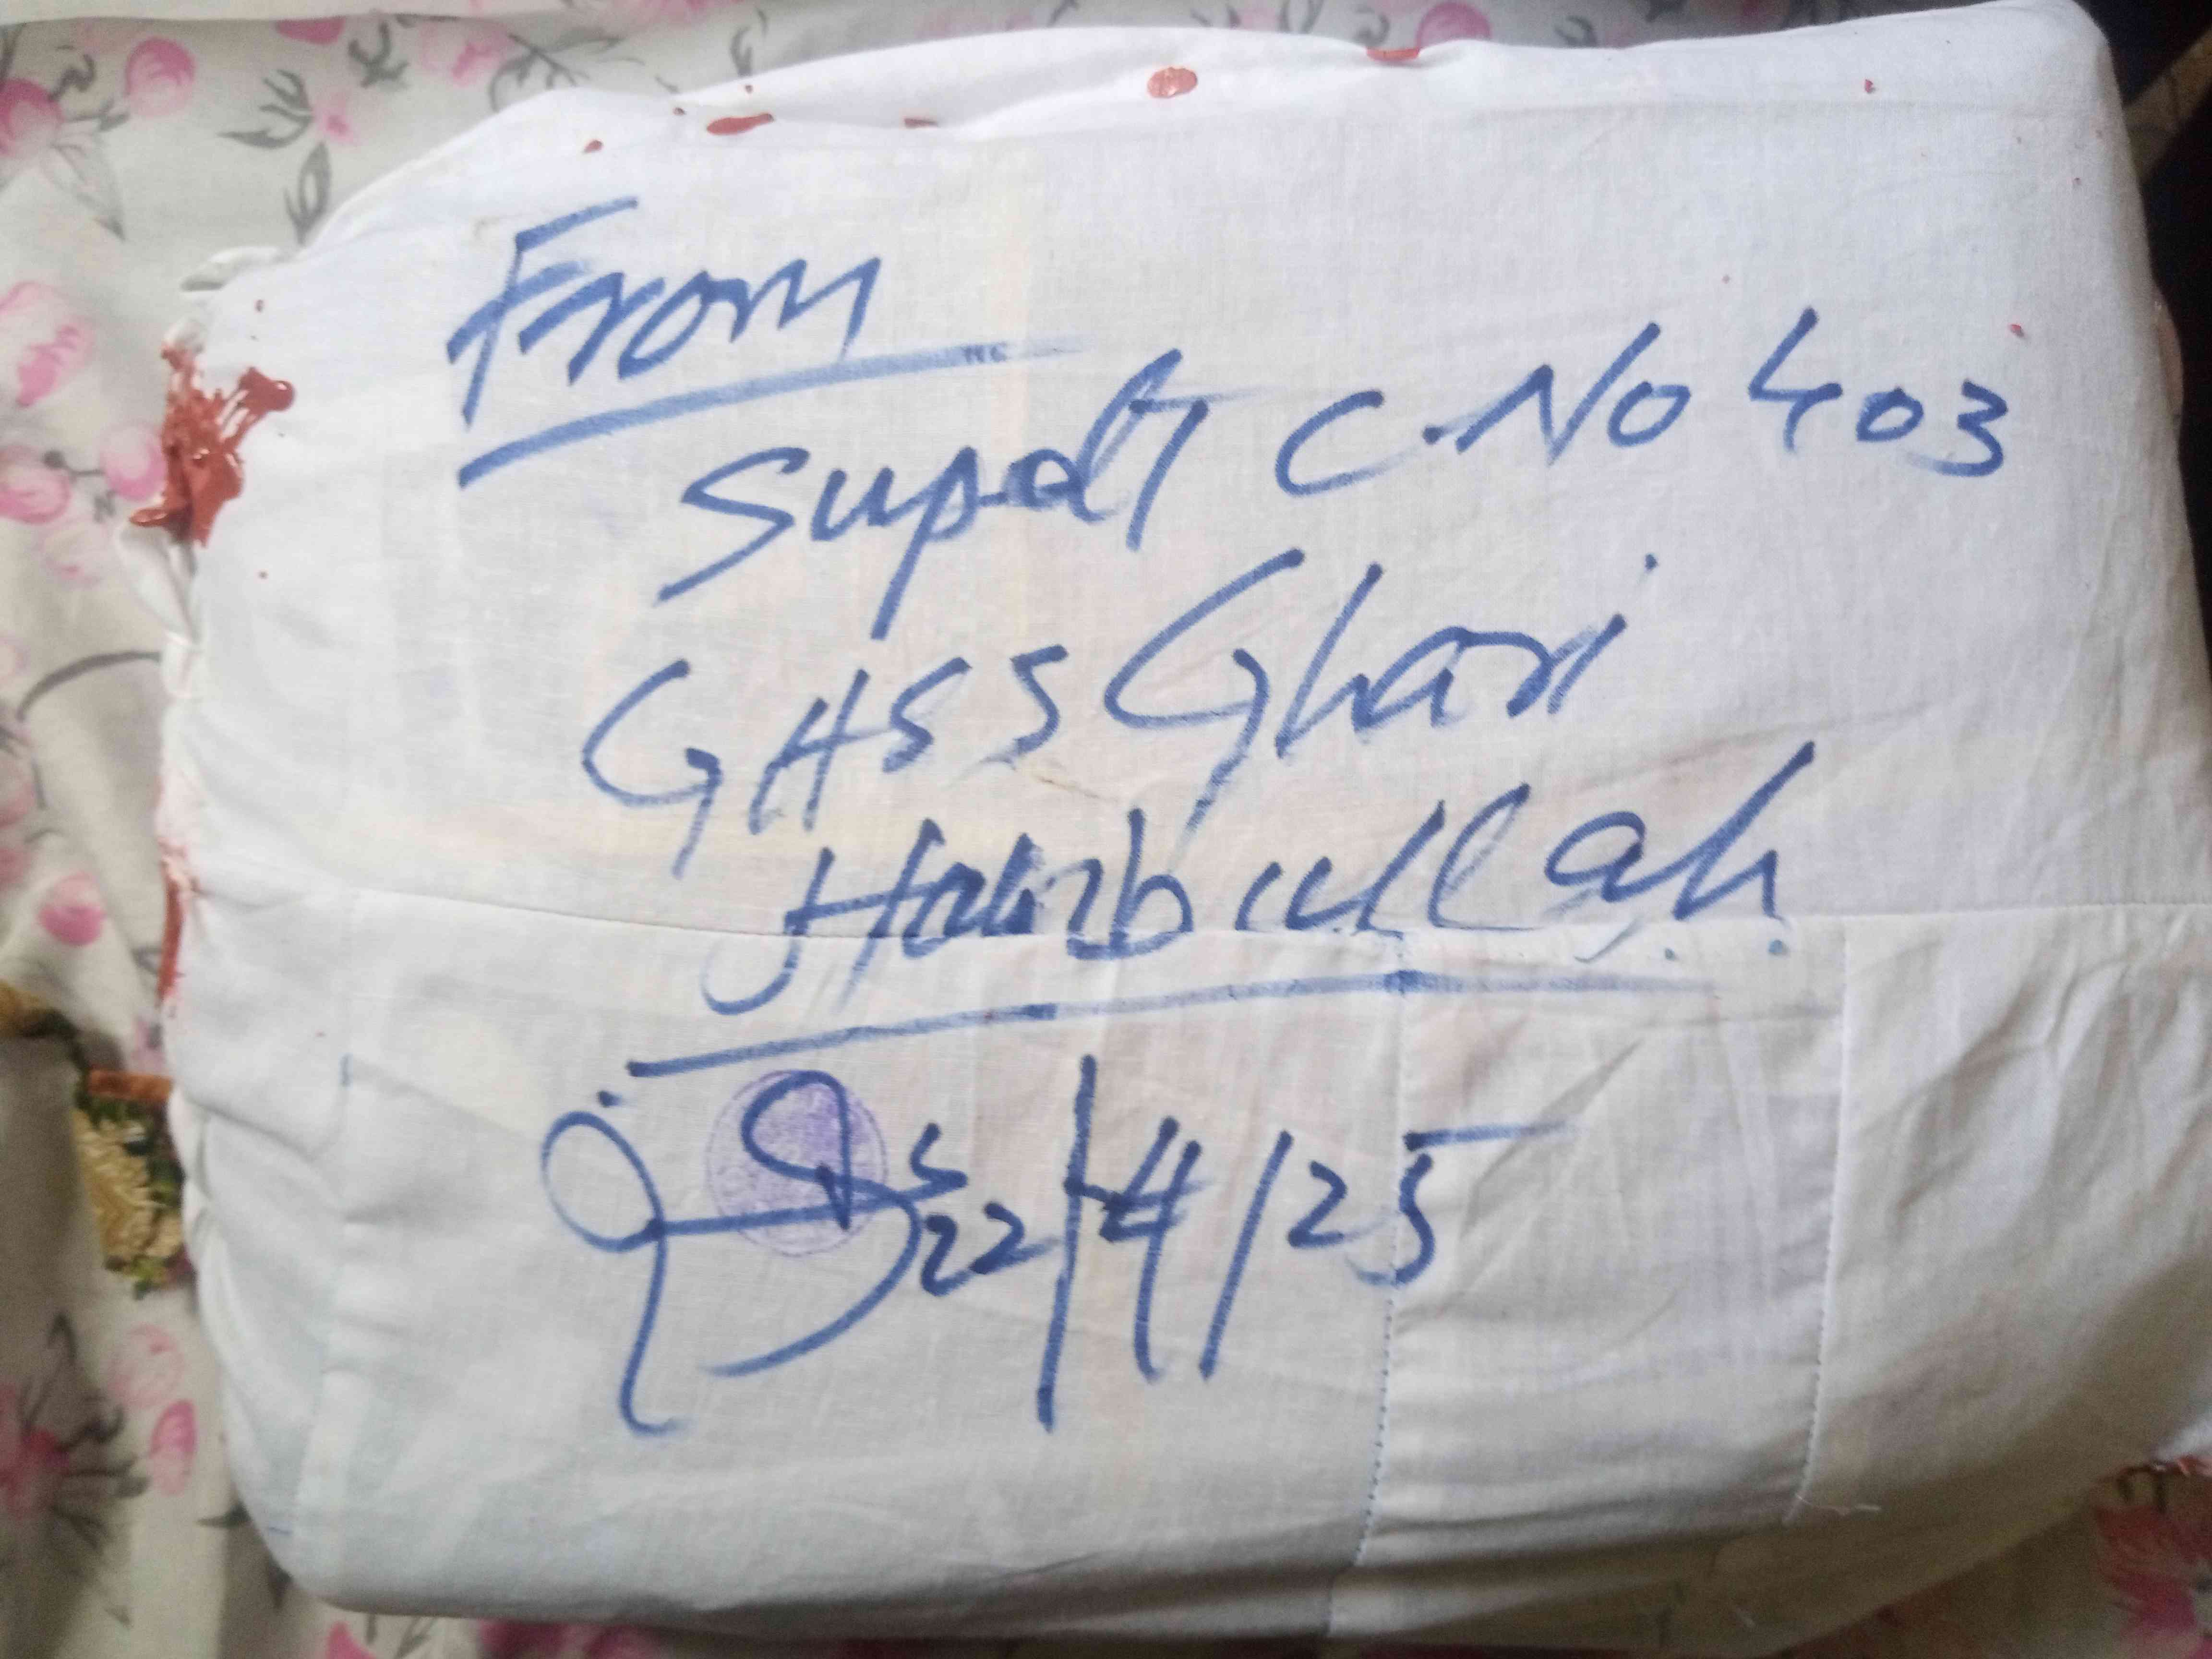 From
Supdt C.No 403
GHSS Ghari
Habibullah
22/4/25